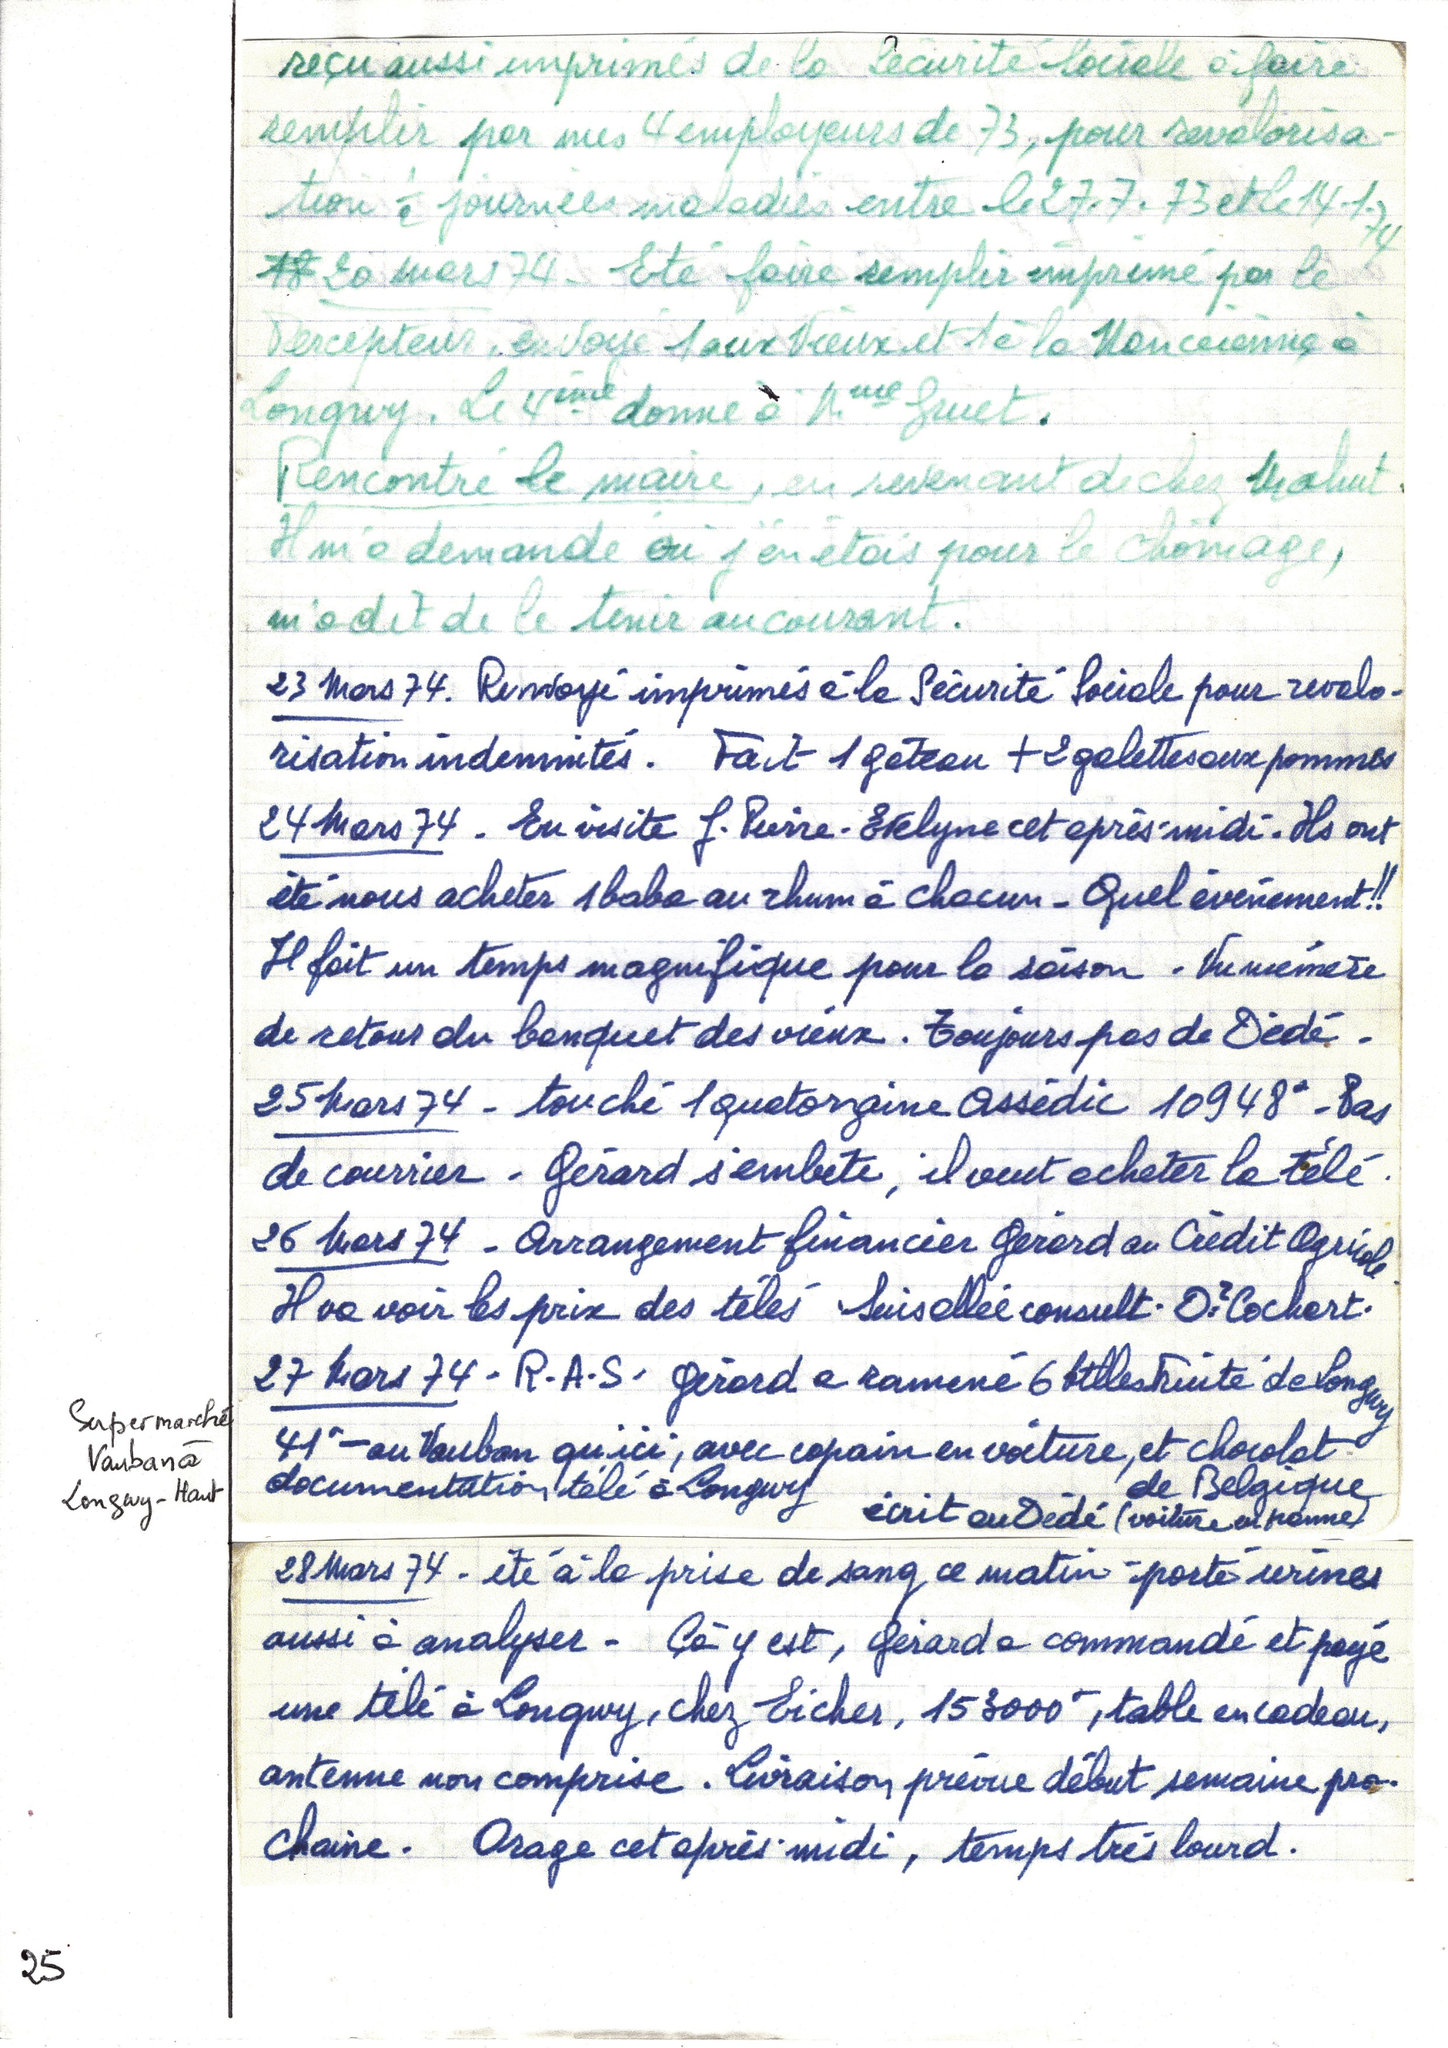 reçu aussi imprimés de la Sécurité Sociale à faire
remplir par mes 4 employeurs de 73, pour revalorisa-
tion journées maladies entre le 27.7.73 et le 14.1.74
20 Mars 74 - Eté faire remplir imprimé par le
Percepteur, envoyé 1 aux Vieux et 1 à la à
Longwy. Le 4ème donné à Mme Gruet.
Rencontré le maire, en revenant de chez Mahut.
Il m'a demandé où j'en étais pour le chômage,
m'a dit de le tenir au courant.
23 Mars 74. Renvoyé imprimés à la Sécurité Sociale pour revalo-
risation indemnités. Fait 1 gâteau + 2 galettes aux pommes
24 Mars 74 - En visite J. Pierre - Evelyne cet après-midi. Ils ont
été nous acheter 1 baba au rhum à chacun - Quel évènement!!
Il fait un temps magnifique pour la saison. Vu mémère
de retour du banquet des vieux. Toujours pas de Dédé.
25 Mars 74 - touché 1 quatorzaine Assédic 10948 - Pas
de courrier - Gérard s'embête, il veut acheter la télé.
26 Mars 74 - Arrangement financier Gérard au Crédit Agricole
Il va voir les prix des télés. Suis allée consult. Dr Cochart.
27 Mars 74 - R.A.S. Gérard a ramené 6 Btlles Truité de Longwy
Supermarché
Vauban à
Longwy-Haut
41 - au Vauban qu'ici, avec copain en voiture, et chocolat
de Belgique
documentation télé à Longwy
écrit au Dédé (voiture en panne)
28 Mars 74 - été à la prise de sang ce matin - porté urines
aussi à analyser - Çà y est, Gérard a commandé et payé
une télé à Longwy, chez Eicher, 153000, table en cadeau,
antenne non comprise. Livraison prévue début semaine pro-
chaine. Orage cet après-midi, temps très lourd.
25